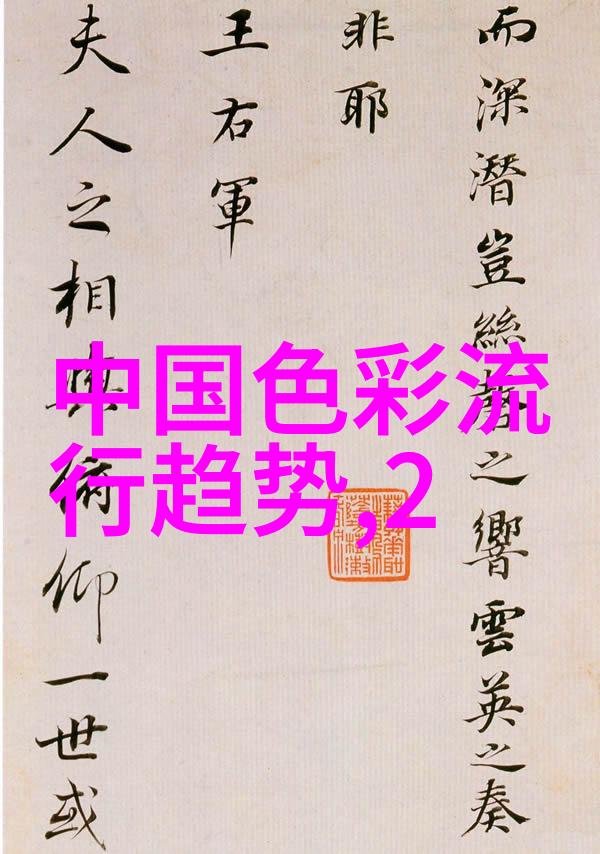 而深潛豈絲之響雲英之奏
非耶
王右軍
夫人之相與俯仰一世或
中国色彩流行趋势,2